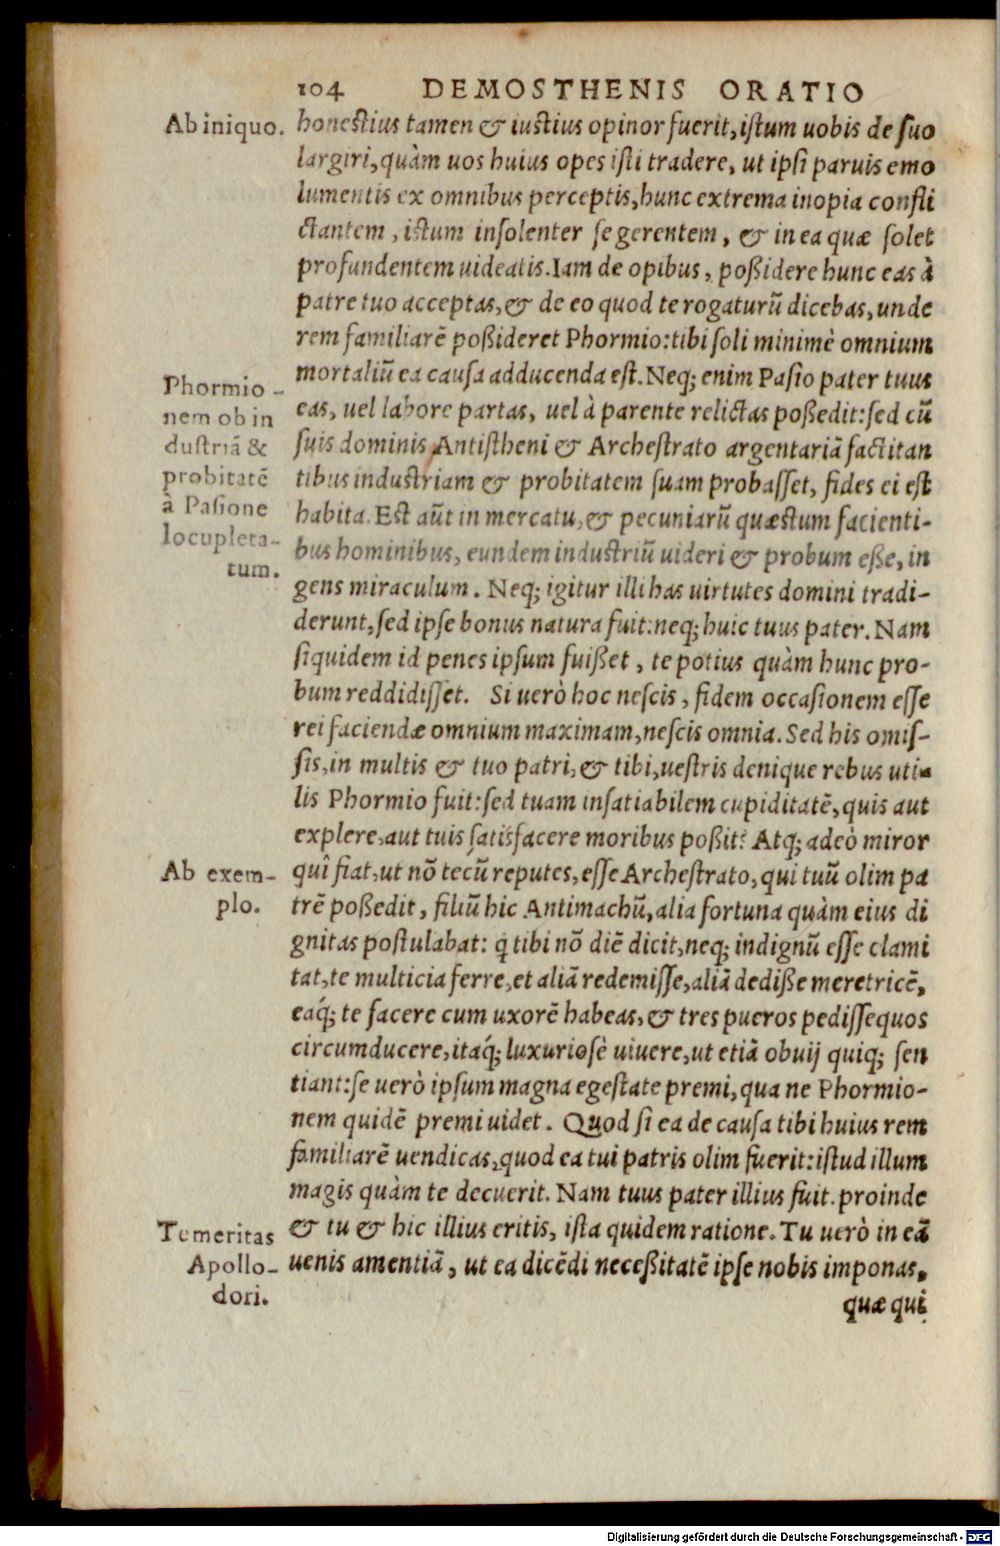 104 DEMOSTHENIS ORATIO
Ab iniquo.
honestius tamen & iustius opinor fuerit, istum uobis de suo
largiri, quàm uos huius opes isti tradere, ut ipsi paruis emo
lumentis ex omnibus perceptis, hunc extrema inopia confli
ctantem, istum insolenter se gerentem, & in ea quæ solet
profundentem uideatis. Iam de opibus, possidere hunc eas à
patre tuo acceptas, & de eo quod te rogaturũ dicebas, unde
rem familiarẽ possideret Phormio: tibi soli minimè omnium
mortaliũ ea causa adducenda est. Neq; enim Pasio pater tuus
Phormio-
nem ob in
dustriã &
probitatẽ
à Pasione
locupleta-
tum.
eas, uel labore partas, uel à parente relictas possedit: sed cũ
suis dominis Antistheni & Archestrato argentariã factitan
tibus industriam & probitatem suam probasset, fides ei est
habita. Est aũt in mercatu, & pecuniarũ quæstum facienti-
bus hominibus, eundem industriũ uideri & probum esse, in
gens miraculum. Neq; igitur illi has uirtutes domini tradi-
derunt, sed ipse bonus natura fuit: neq; huic tuus pater. Nam
siquidem id penes ipsum fuisset, te potius quàm hunc pro-
bum reddidisset. Si uerò hoc nescis, fidem occasionem esse
rei faciendæ omnium maximam, nescis omnia. Sed his omis-
sis, in multis & tuo patri, & tibi, uestris denique rebus uti-
lis Phormio fuit: sed tuam insatiabilem cupiditatẽ, quis aut
explere, aut tuis satisfacere moribus possit? Atq; adeò miror
Ab exem-
plo.
quî fiat, ut nõ tecũ reputes, esse Archestrato, qui tuũ olim pa
trẽ possedit, filiũ hic Antimachũ, alia fortuna quàm eius di
gnitas postulabat: q tibi nõ diẽ dicit, neq; indignũ esse clami
tat, te multicia ferre, et aliã redemisse, aliã dedisse meretricẽ,
eaq́; te facere cum uxorẽ habeas, & tres pueros pedissequos
circumducere, itaq́; luxuriosè uiuere, ut etiã obuij quiq; sen
tiant: se uerò ipsum magna egestate premi, qua ne Phormio-
nem quidẽ premi uidet. Quod si ea de causa tibi huius rem
familiarẽ uendicas, quod ea tui patris olim fuerit: istud illum
magis quàm te decuerit. Nam tuus pater illius fuit. proinde
Temeritas
Apollo-
dori.
& tu & hic illius eritis, ista quidem ratione. Tu uerò in eã
uenis amentiã, ut ea dicẽdi necessitatẽ ipse nobis imponas,
quæ qui
Digitalisierung gefördert durch die Deutsche Forschungsgemeinschaft - DFG